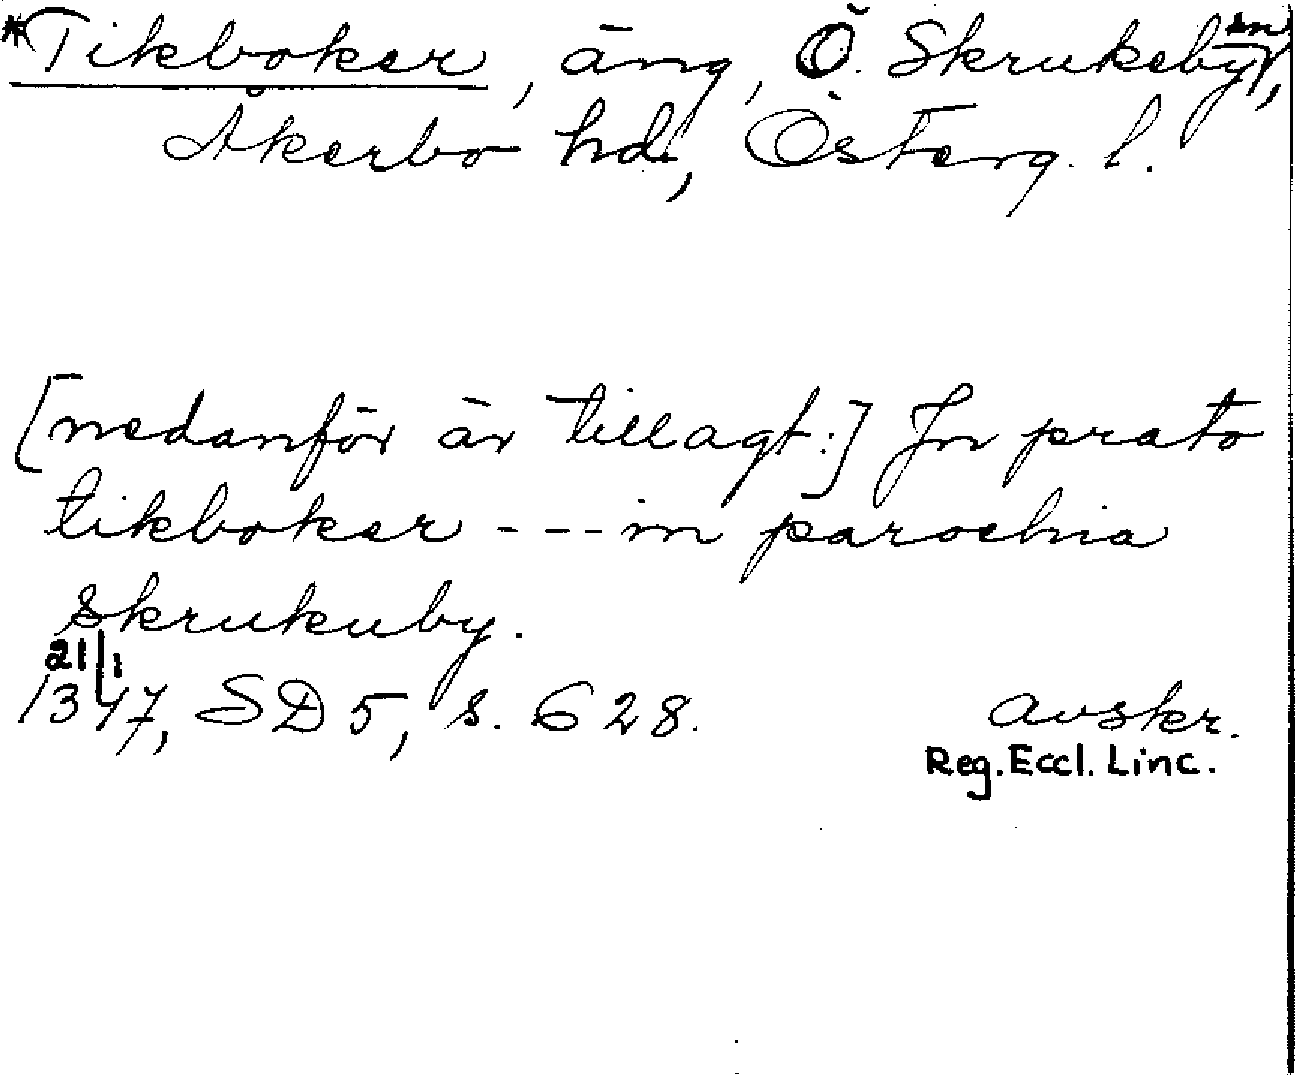 *Tikboker, äng, Ö. Skrukeby sn,
Åkerbo hd, Österg. l.
[nedanför är tillagt:] In prato
tikboker - - - in parochia
skrukuby.
21/1
1347, SD 5, s. 628. avskr.
Reg. Eccl. Linc.